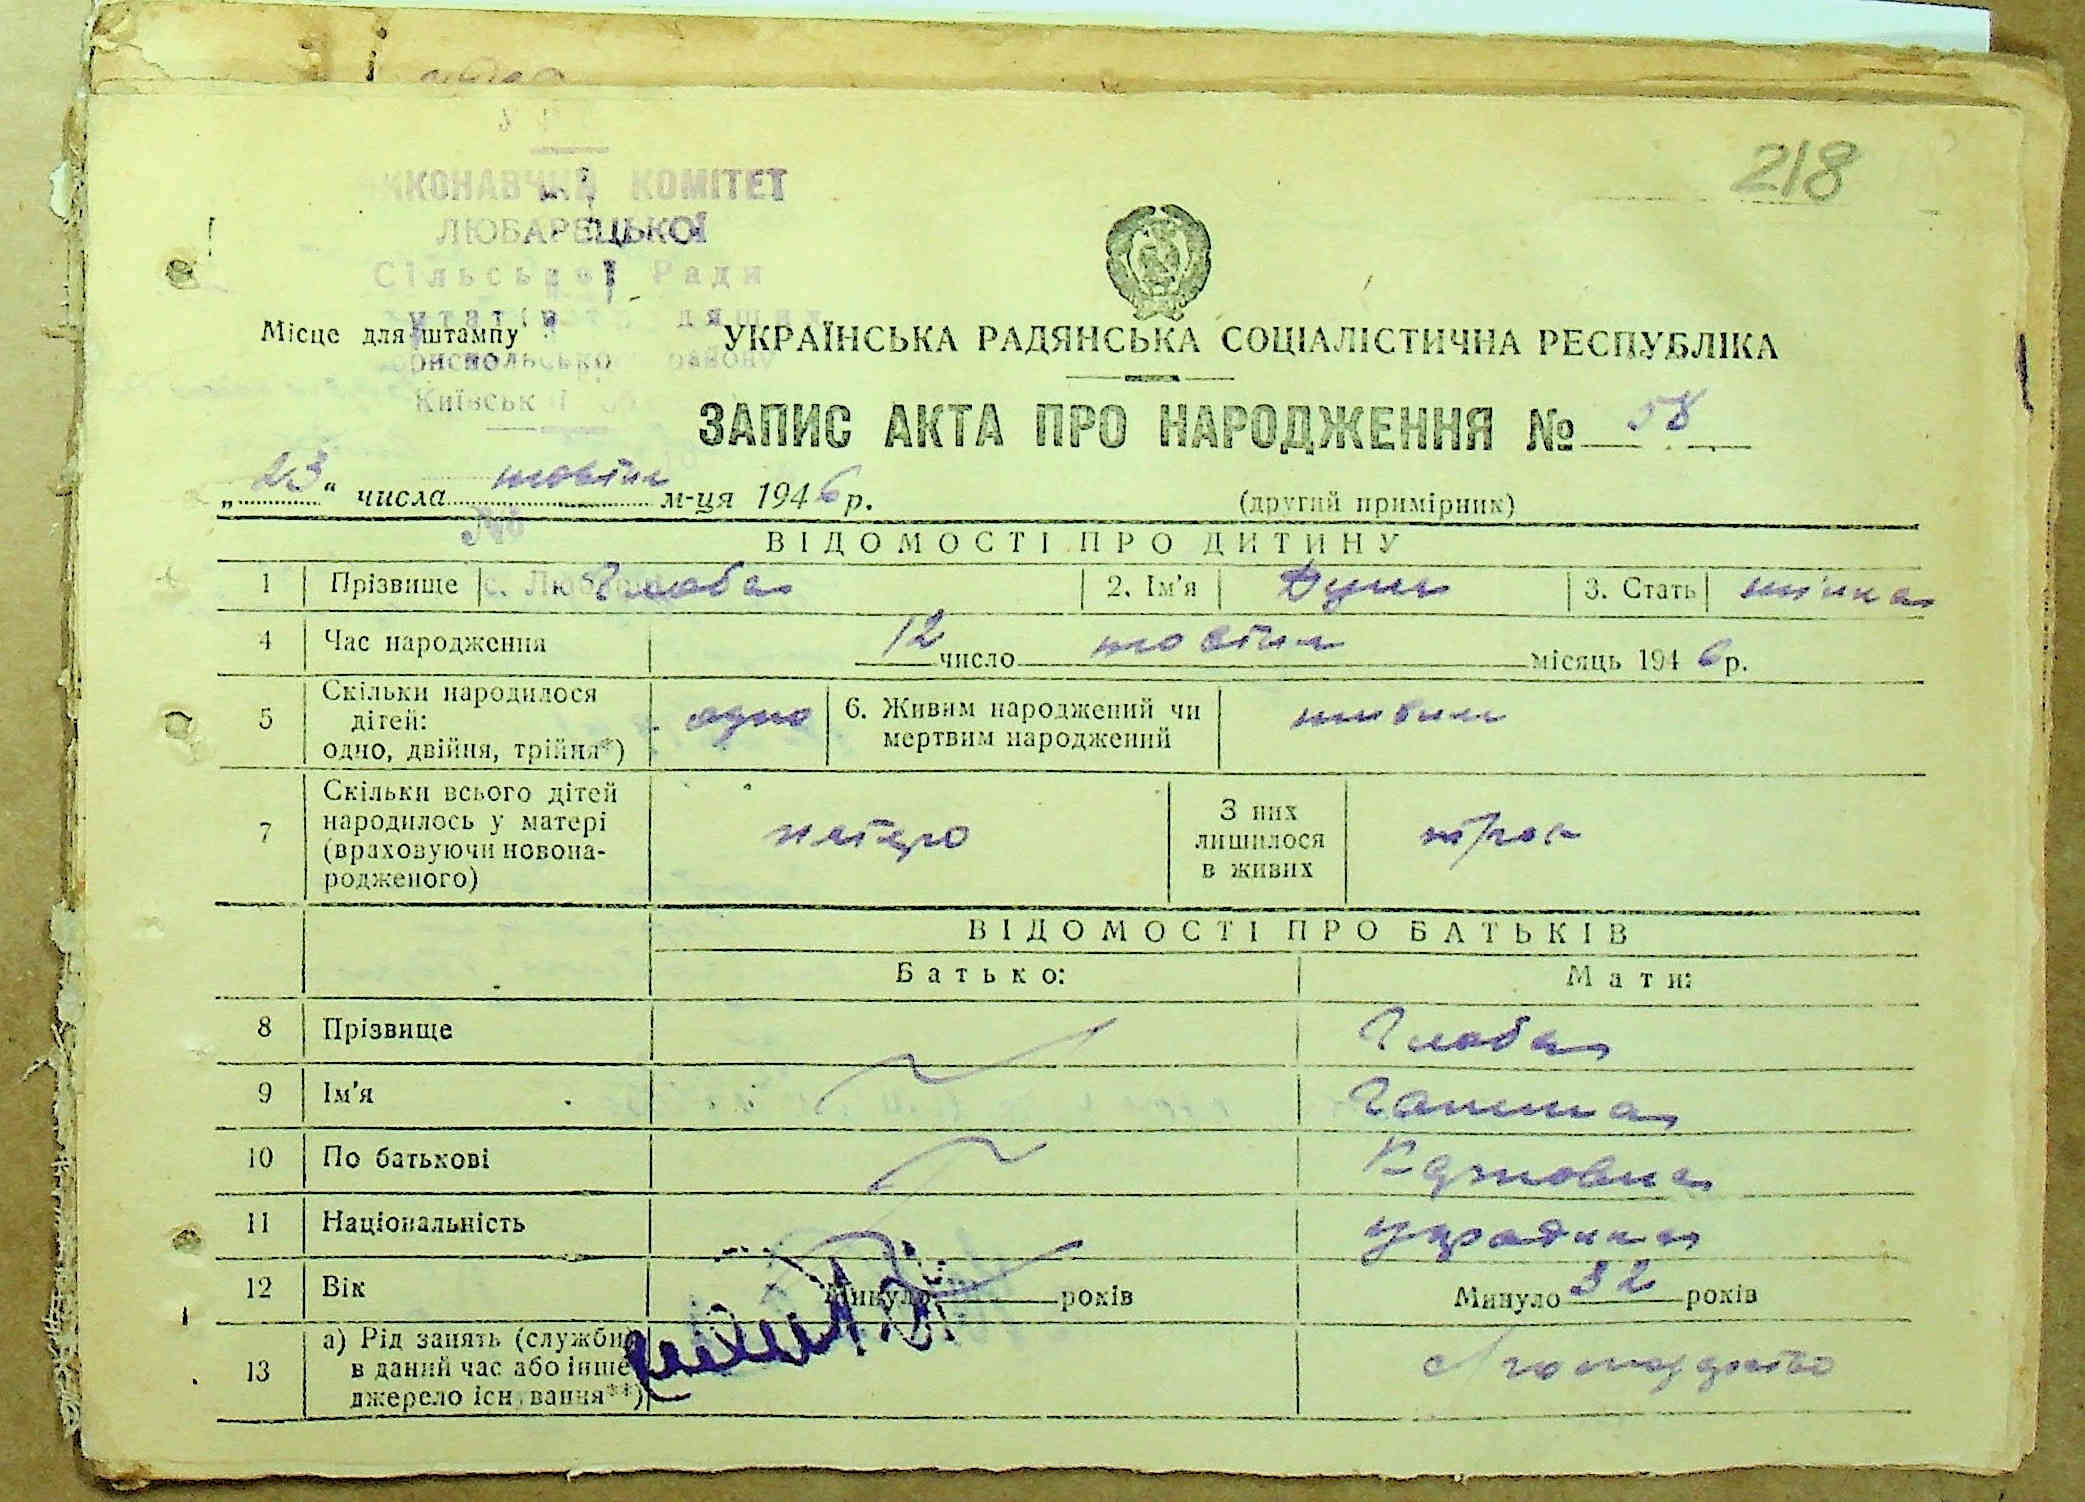 218
ВИКОНАВЧИЙ КОМІТЕТ
ЛЮБАРЕЦЬКОЇ
Сільської Ради
Місце для штампу
Київськ
УКРАЇНСЬКА РАДЯНСЬКА СОЦІАЛІСТИЧНА РЕСПУБЛІКА
ЗАПИС АКТА ПРО НАРОДЖЕННЯ № 58
„23“ числа жовтня м-ця 1946 р. (другий примірник)
ВІДОМОСТІ ПРО ДИТИНУ
1 Прізвище Глоба 2. Ім'я 3. Стать жіноча
4 Час народження 12 число жовтня місяць 1946 р.
5 Скільки народилося дітей: одно, двійня, трійня*) одно 6. Живим народжений чи мертвим народжений живим
7 Скільки всього дітей народилось у матері (враховуючи новонародженого) пятеро З них лишилося в живих троє
ВІДОМОСТІ ПРО БАТЬКІВ
Батько: Мати:
8 Прізвище Глоба
9 Ім'я Ганна
10 По батькові
11 Національність українка
12 Вік Минуло років Минуло 32 років
13 а) Рід занять (служби) в даний час або інше джерело існування**)